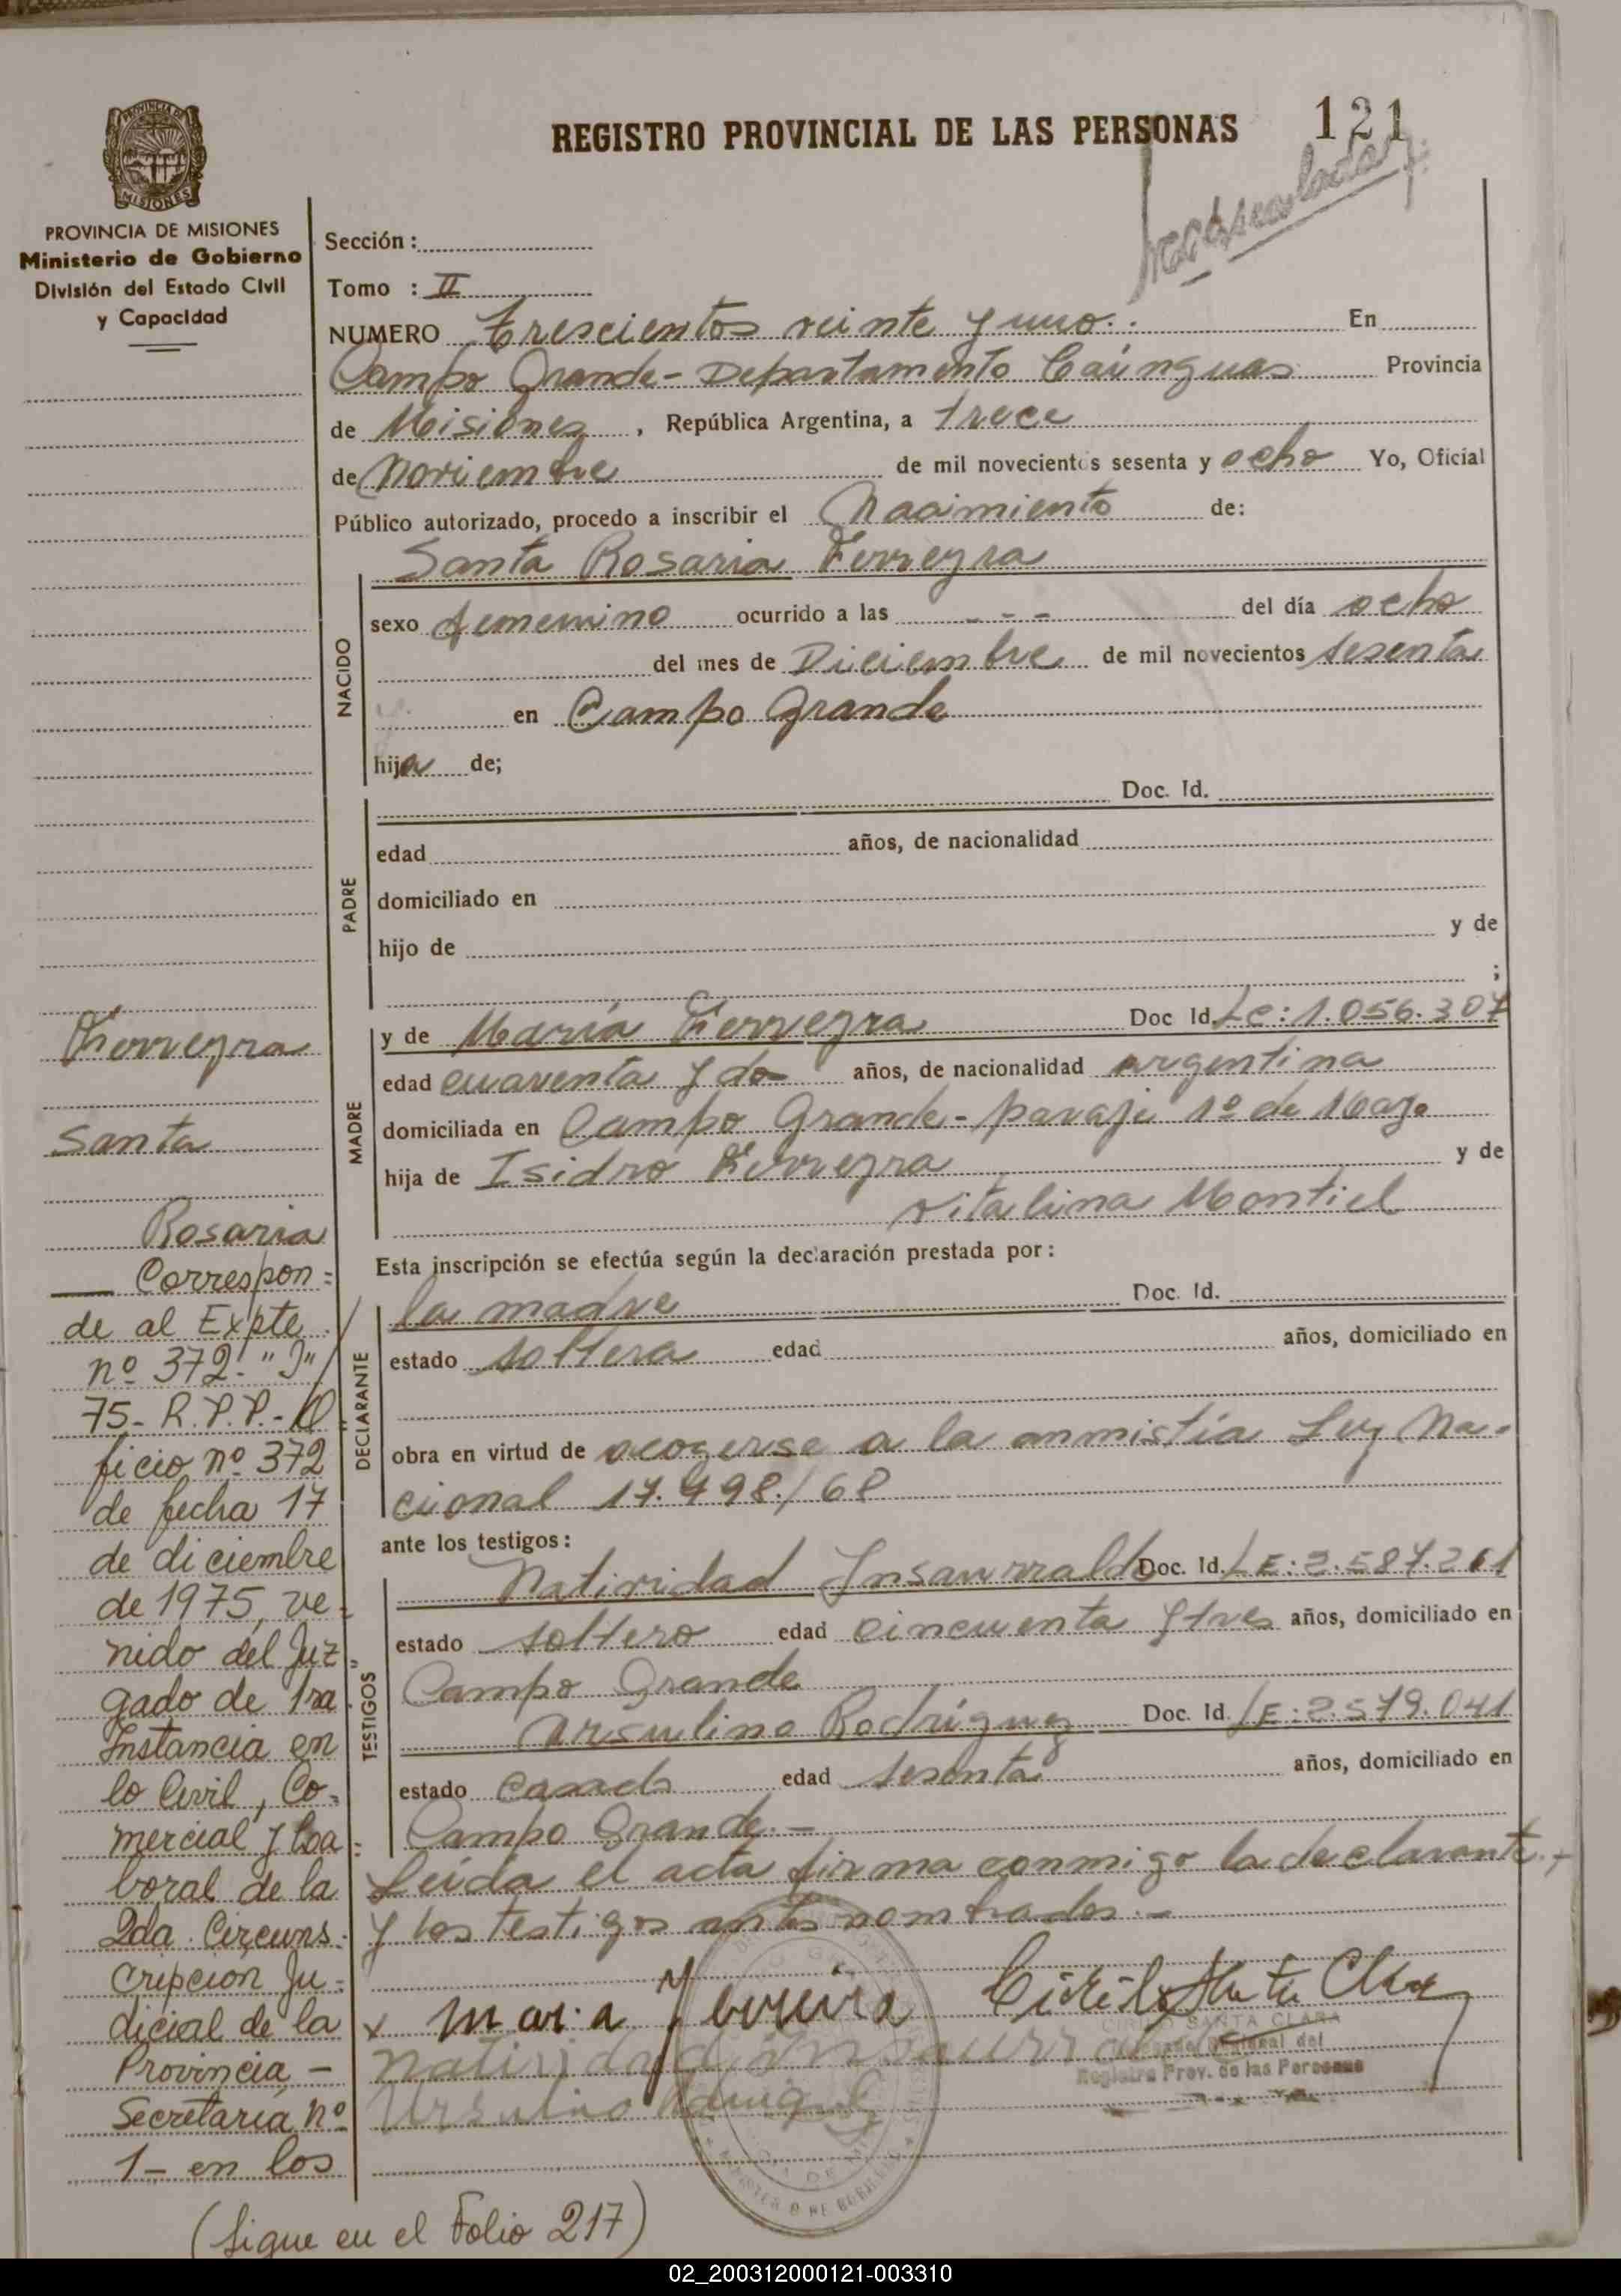 REGISTRO PROVINCIAL DE LAS PERSONAS 121
PROVINCIA DE MISIONES
PROVINCIA DE MISIONES
Ministerio de Gobierno
División del Estado Civil
y Capacidad
Sección :
Tomo : II
NUMERO Trescientos veinte y uno.. En
Campo Grande - Departamento Cainguas Provincia
de Misiones , República Argentina, a trece
de Noviembre de mil novecientos sesenta y ocho Yo, Oficial
Público autorizado, procedo a inscribir el Nacimiento de:
Santa Rosaria Ferreyra
NACIDO
sexo femenino ocurrido a las - - - del día ocho
del mes de Diciembre de mil novecientos sesenta
en Campo Grande
hija de;
PADRE
Doc. Id.
edad años, de nacionalidad
domiciliado en
hijo de y de
;
MADRE
y de María Ferreyra Doc Id LC: 1.056.307
edad cuarenta y dos años, de nacionalidad argentina
domiciliada en Campo Grande - paraje 1º de Mayo
hija de Isidro Ferreyra y de
Vitalina Montiel
Esta inscripción se efectúa según la declaración prestada por :
DECLARANTE
la madre Doc. Id.
estado soltera edad años, domiciliado en
obra en virtud de acogerse a la amnistía Ley Na-
cional 17.498./68
ante los testigos :
TESTIGOS
Natividad Insaurralde Doc. Id. LE: 2.587.261
estado soltero edad cincuenta y tres años, domiciliado en
Campo Grande
Ursulino Rodríguez Doc. Id. LE: 2.579.041
estado casado edad sesenta años, domiciliado en
Campo Grande. -
Leída el acta firma conmigo la declarante.-
y los testigos antes nombrados. -
x maria Ferreira Cirilo Santa Clara
CIRILO SANTA CLARA
natividad insaurralde
Registro Prov. de las Personas
Ursulino
Ferreyra
Santa
Rosaria
Correspon=
de al Expte.
nº 372- "J"/
75- R.P.P.- O
ficio nº 372
de fecha 17
de diciembre
de 1975, ve=
nido del Juz=
gado de 1ra.
Instancia en
lo Civil, Co=
mercial y Loa=
boral de la
2da. Circuns=
cripcion Ju=
dicial de la
Provincia -
Secretaría nº
1- en los
(Sigue en el Folio 217)
02_200312000121-003310